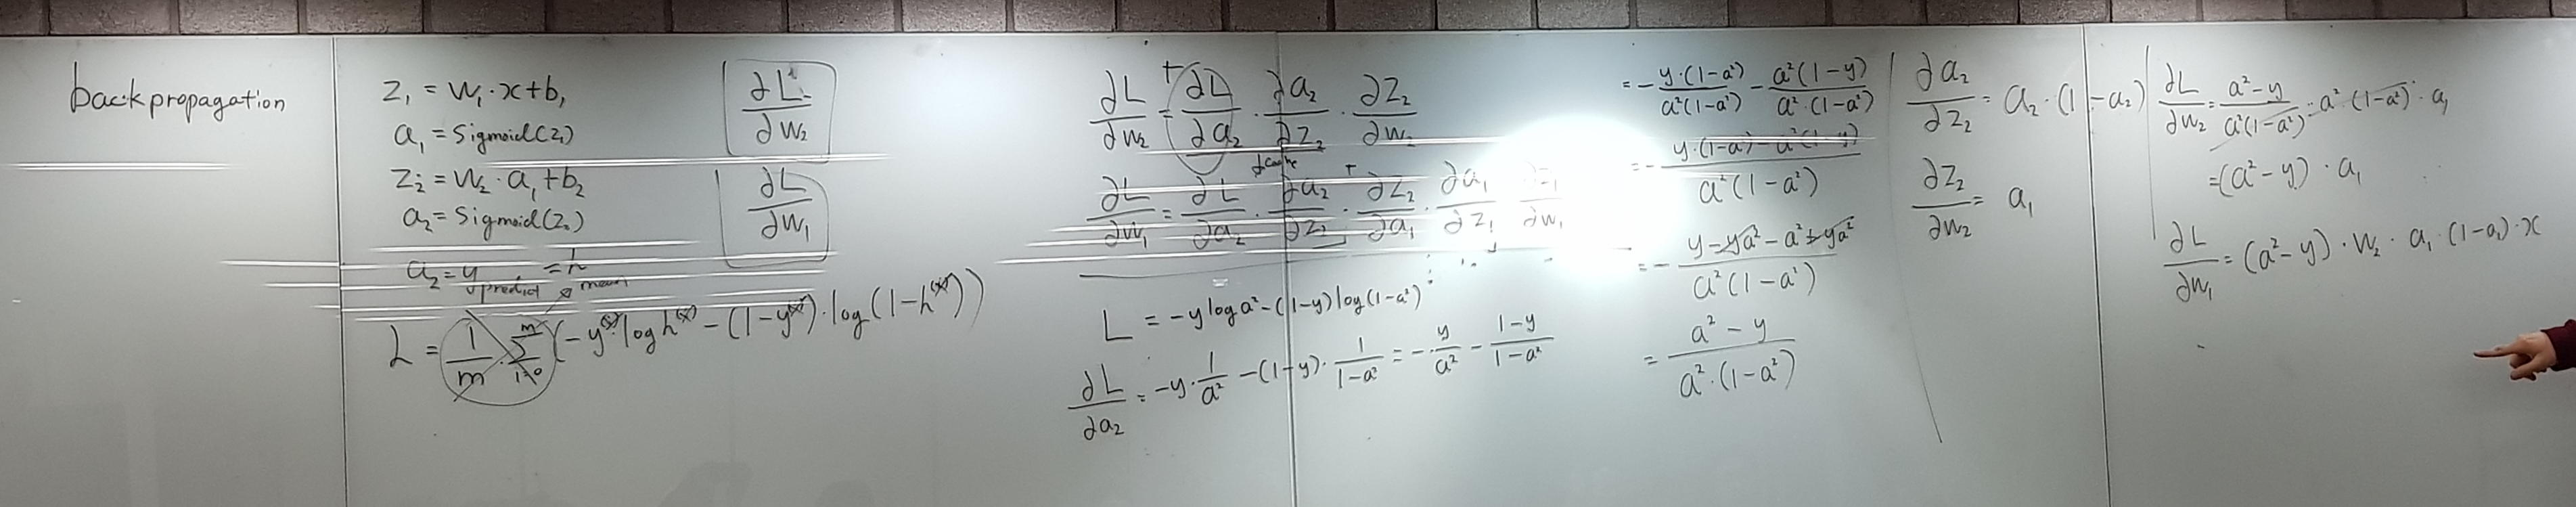 backpropagation
z₁ = w₁·x+b₁
a₁ = sigmoid(z₁)
z₂ = w₂·a₁+b₂
a₂ = sigmoid(z₂)
a₂ = y predict = h
mean
L = 1/m · Σ (-y log h - (1-y)·log(1-h))
∂L/∂w₂
∂L/∂w₁
∂L/∂w₂ = ∂L/∂a₂ · ∂a₂/∂z₂ · ∂z₂/∂w₂
cache
∂L/∂w₁ = ∂L/∂a₂ · ∂a₂/∂z₂ · ∂z₂/∂a₁ · ∂a₁/∂z₁ · ∂z₁/∂w₁
L = -y log a² - (1-y) log(1-a²)
∂L/∂a₂ = -y · 1/a² - (1-y) · 1/(1-a²) = - y/a² - (1-y)/(1-a²)
= - y·(1-a²)/a²(1-a²) - a²(1-y)/a²·(1-a²)
= - (y·(1-a²) - a²(1-y))/a²(1-a²)
= - (y - ya² - a² + ya²)/a²(1-a²)
= (a² - y)/a²·(1-a²)
∂a₂/∂z₂ = a₂·(1-a₂)
∂z₂/∂w₂ = a₁
∂L/∂w₂ = (a²-y)/a²(1-a²) · a²(1-a²) · a₁
= (a²-y) · a₁
∂L/∂w₁ = (a²-y) · w₂ · a₁·(1-a₁)·x